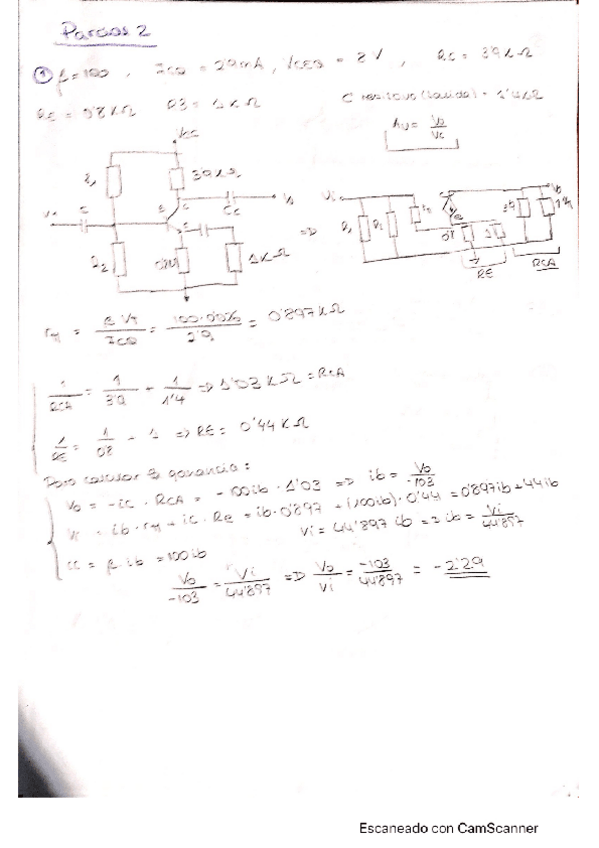 Parcial 2
① β=100 , ICQ = 2'9mA , VCEQ = 8 V , RC = 3'9KΩ
RE = 0'8KΩ R3 = 1KΩ C resistivo (salida) = 1'4KΩ
Av = Vo/Vi
Vcc
R1 3'9KΩ
C Cc
R2 1KΩ
=> Vi Vo
R1 R2 rπ 0'8 1 3'9 1'4
RE RCA
rπ = β·VT/ICQ = 100·0'026/2'9 = 0'897KΩ
1/RCA = 1/3'9 + 1/1'4 => 1'03KΩ = RCA
1/RE = 1/0'8 + 1 => RE = 0'44KΩ
Para calcular la ganancia:
Vo = -ic · RCA = -100ib · 1'03 => ib = Vo/-103
Vi = ib·rπ + ic·Re = ib·0'897 + (100ib)·0'44 = 0'897ib + 44ib
Vi = 44'897 ib => ib = Vi/44'897
ic = β·ib = 100ib
Vo/-103 = Vi/44'897 => Vo/Vi = -103/44'897 = -2'29
Escaneado con CamScanner